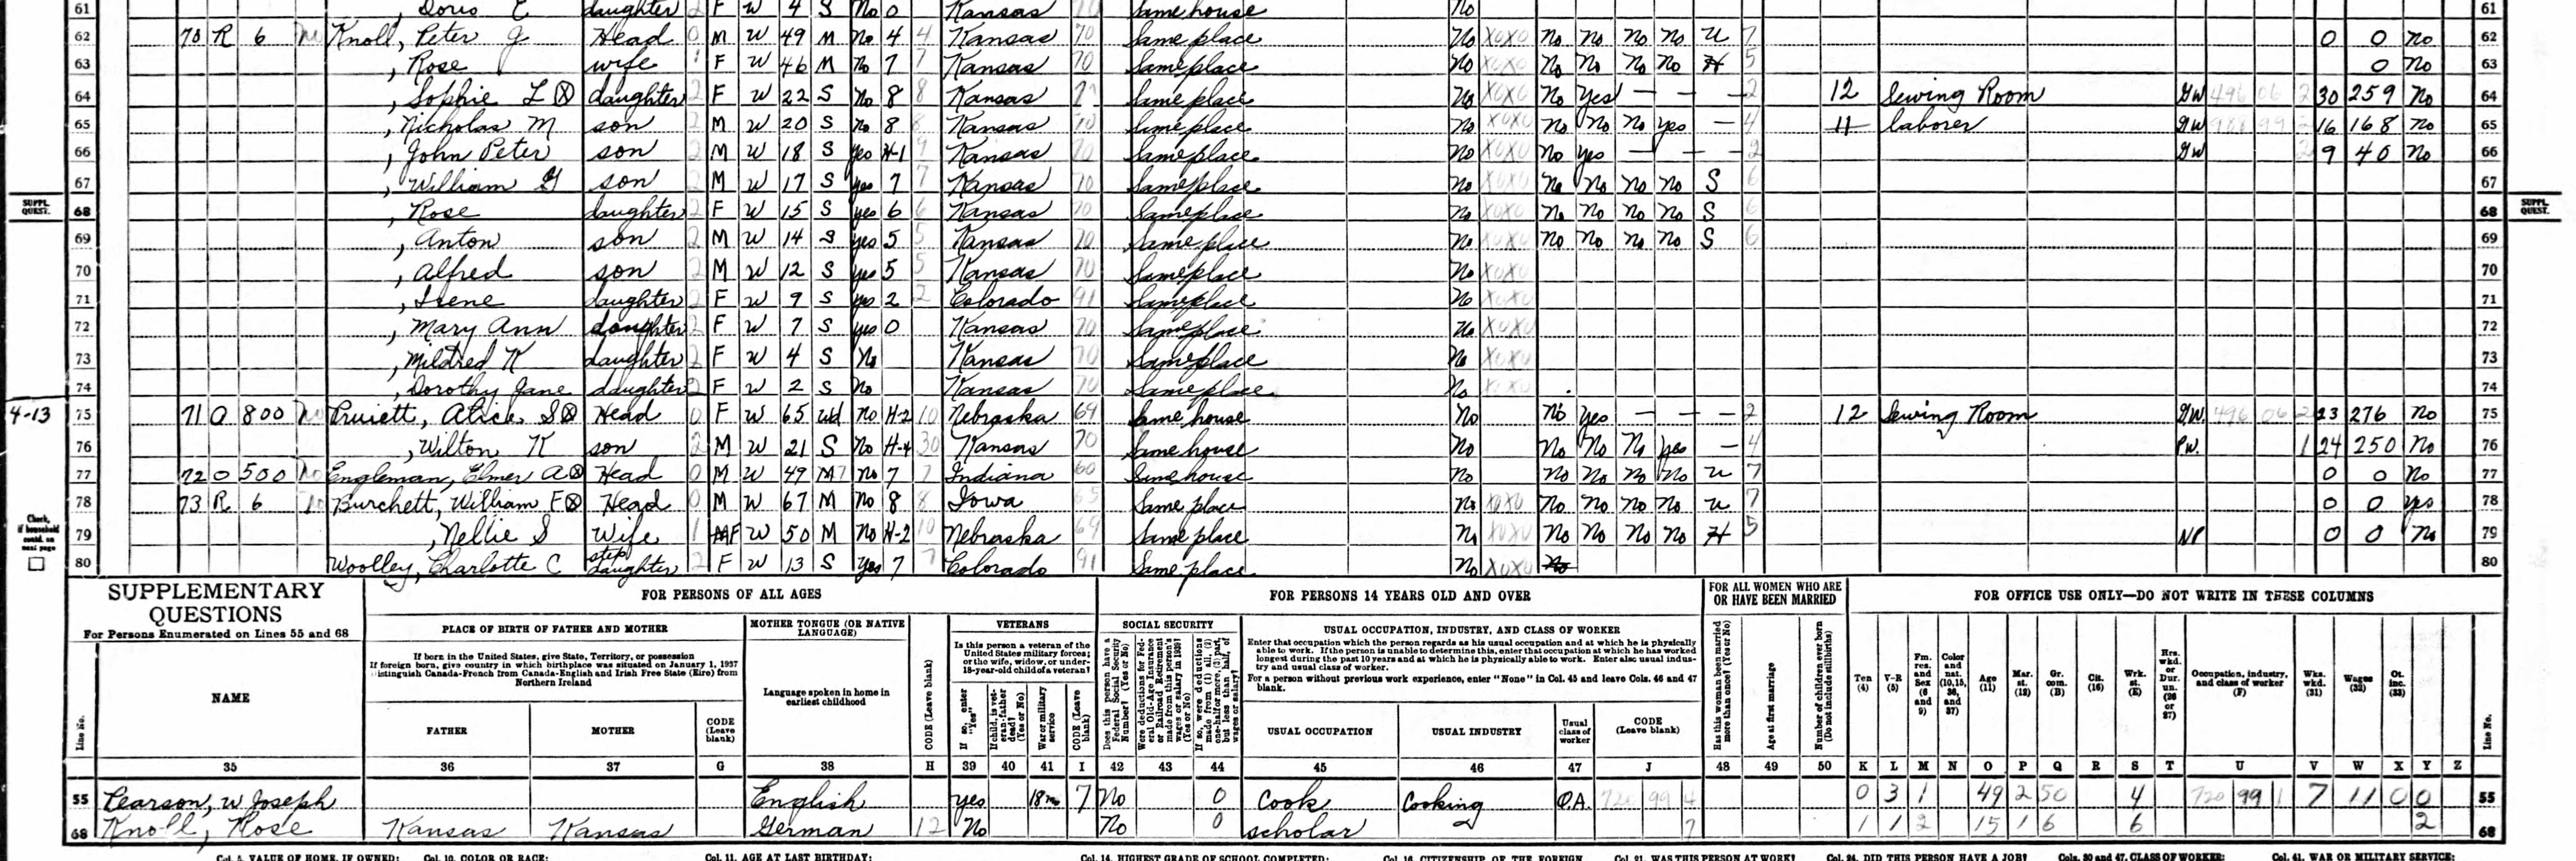 61 , Doris E daughter 2 F W 4 S No 0 Kansas 70 Same house No 61
62 70 R 6 No Knoll, Peter J Head 0 M W 49 M No 4 4 Kansas 70 Same place No X0X0 No No No No U 7 0 0 No 62
63 , Rose wife 1 F W 46 M No 7 7 Kansas 70 Same place No X0X0 No No No No H 5 0 No 63
64 , Sophie L ⓧ daughter 2 F W 22 S No 8 8 Kansas Same place No X0X0 No Yes — — — 2 12 Sewing Room GW 496 06 2 30 259 No 64
65 , Nicholas M son 2 M W 20 S No 8 8 Kansas 70 Same place No X0X0 No No No yes — 4 11 laborer GW 988 99 2 16 168 No 65
66 , John Peter son 2 M W 18 S Yes H-1 9 Kansas 70 Same place No X0X0 No yes — — — 2 GW 2 9 40 No 66
67 , William G son 2 M W 17 S Yes 7 7 Kansas 70 Same place No X0X0 No No No No S 6 67
SUPPL. QUEST. 68 , Rose daughter 2 F W 15 S yes 6 6 Kansas 70 Same place No X0X0 No No No No S 6 68 SUPPL. QUEST.
69 , Anton son 2 M W 14 S yes 5 5 Kansas 70 Same place No X0X0 No No No No S 6 69
70 , Alfred son 2 M W 12 S yes 5 5 Kansas 70 Same place No X0X0 70
71 , Irene daughter 2 F W 9 S yes 2 2 Colorado 91 Same place No X0X0 71
72 , Mary Ann daughter 2 F W 7 S yes 0 Kansas 70 Same place No X0X0 72
73 , Mildred K daughter 2 F W 4 S No Kansas 70 Same place No X0X0 73
74 , Dorothy Jane daughter 2 F W 2 S No Kansas 70 Same place No X0X0 74
4-13 75 71 O 800 No Pruiett, Alice S ⓧ Head 0 F W 65 Wd No H-2 10 Nebraska 69 Same house No No Yes — — — 2 12 Sewing Room GW. 496 06 2 23 276 No 75
76 , Wilton K son 2 M W 21 S No H-4 30 Kansas 70 Same house No No No No yes — 4 PW. 1 24 250 No 76
77 72 O 500 No Engleman, Elmer A ⓧ Head 0 M W 49 M 7 No 7 7 Indiana 60 Same house No No No No No U 7 0 0 No 77
78 73 R 6 No Burchett, William F ⓧ Head 0 M W 67 M No 8 8 Iowa 65 Same place No X0X0 No No No No U 7 0 0 yes 78
79 , Nellie S Wife 1 F W 50 M No H-2 10 Nebraska 69 Same place No X0X0 No No No No H 5 NP 0 0 No 79
Check, if household contd. on next page
80 Woolley, Charlotte C step daughter 2 F W 13 S Yes 7 7 Colorado 91 Same place No X0X0 No 80
SUPPLEMENTARY QUESTIONS
For Persons Enumerated on Lines 55 and 68
FOR PERSONS OF ALL AGES
FOR PERSONS 14 YEARS OLD AND OVER
FOR ALL WOMEN WHO ARE OR HAVE BEEN MARRIED
FOR OFFICE USE ONLY—DO NOT WRITE IN THESE COLUMNS
Line No.
NAME
PLACE OF BIRTH OF FATHER AND MOTHER
If born in the United States, give State, Territory, or possession
If foreign born, give country in which birthplace was situated on January 1, 1937
Distinguish Canada-French from Canada-English and Irish Free State (Eire) from Northern Ireland
FATHER
MOTHER
CODE (Leave blank)
MOTHER TONGUE (OR NATIVE LANGUAGE)
Language spoken in home in earliest childhood
CODE (Leave blank)
VETERANS
Is this person a veteran of the United States military forces; or the wife, widow, or under-18-year-old child of a veteran?
If so, enter "Yes"
If child, is veteran-father dead? (Yes or No)
War or military service
CODE (Leave blank)
SOCIAL SECURITY
Does this person have a Federal Social Security Number? (Yes or No)
Were deductions for Federal Old-Age Insurance or Railroad Retirement made from this person's wages or salary in 1939? (Yes or No)
If so, were deductions made from (1) all, (2) one-half or more, (3) part, but less than half, of wages or salary?
USUAL OCCUPATION, INDUSTRY, AND CLASS OF WORKER
Enter that occupation which the person regards as his usual occupation and at which he is physically able to work. If the person is unable to determine this, enter that occupation at which he has worked longest during the past 10 years and at which he is physically able to work. Enter also usual industry and usual class of worker.
For a person without previous work experience, enter "None" in Col. 45 and leave Cols. 46 and 47 blank.
USUAL OCCUPATION
USUAL INDUSTRY
Usual class of worker
CODE (Leave blank)
Has this woman been married more than once? (Yes or No)
Age at first marriage
Number of children ever born (Do not include stillbirths)
Ten (4) V-R (5) Fm. res. and Sex (6 and 9) Color and nat. (10, 15, 36, and 37) Age (11) Mar. st. (12) Gr. com. (B) Cit. (16) Wrk. st. (E) Hrs. wkd. or Dur. un. (26 or 27) Occupation, industry, and class of worker (F) Wks. wkd. (31) Wages (32) Ot. inc. (33)
Line No.
35 36 37 G 38 H 39 40 41 I 42 43 44 45 46 47 J 48 49 50 K L M N O P Q R S T U V W X Y Z
55 Pearson, W Joseph English yes 18 mo 7 No 0 Cook Cooking O.A. 720 99 4 0 3 1 49 2 50 4 720 99 1 7 11 0 0 55
68 Knoll, Rose Kansas Kansas German 12 No No 0 scholar 7 1 1 2 15 1 6 6 2 68
Col. 5. VALUE OF HOME, IF OWNED: Col. 10. COLOR OR RACE: Col. 11. AGE AT LAST BIRTHDAY: Col. 14. HIGHEST GRADE OF SCHOOL COMPLETED: Col. 16. CITIZENSHIP OF THE FOREIGN Col. 21. WAS THIS PERSON AT WORK? Col. 24. DID THIS PERSON HAVE A JOB? Cols. 30 and 47. CLASS OF WORKER: Col. 41. WAR OR MILITARY SERVICE: